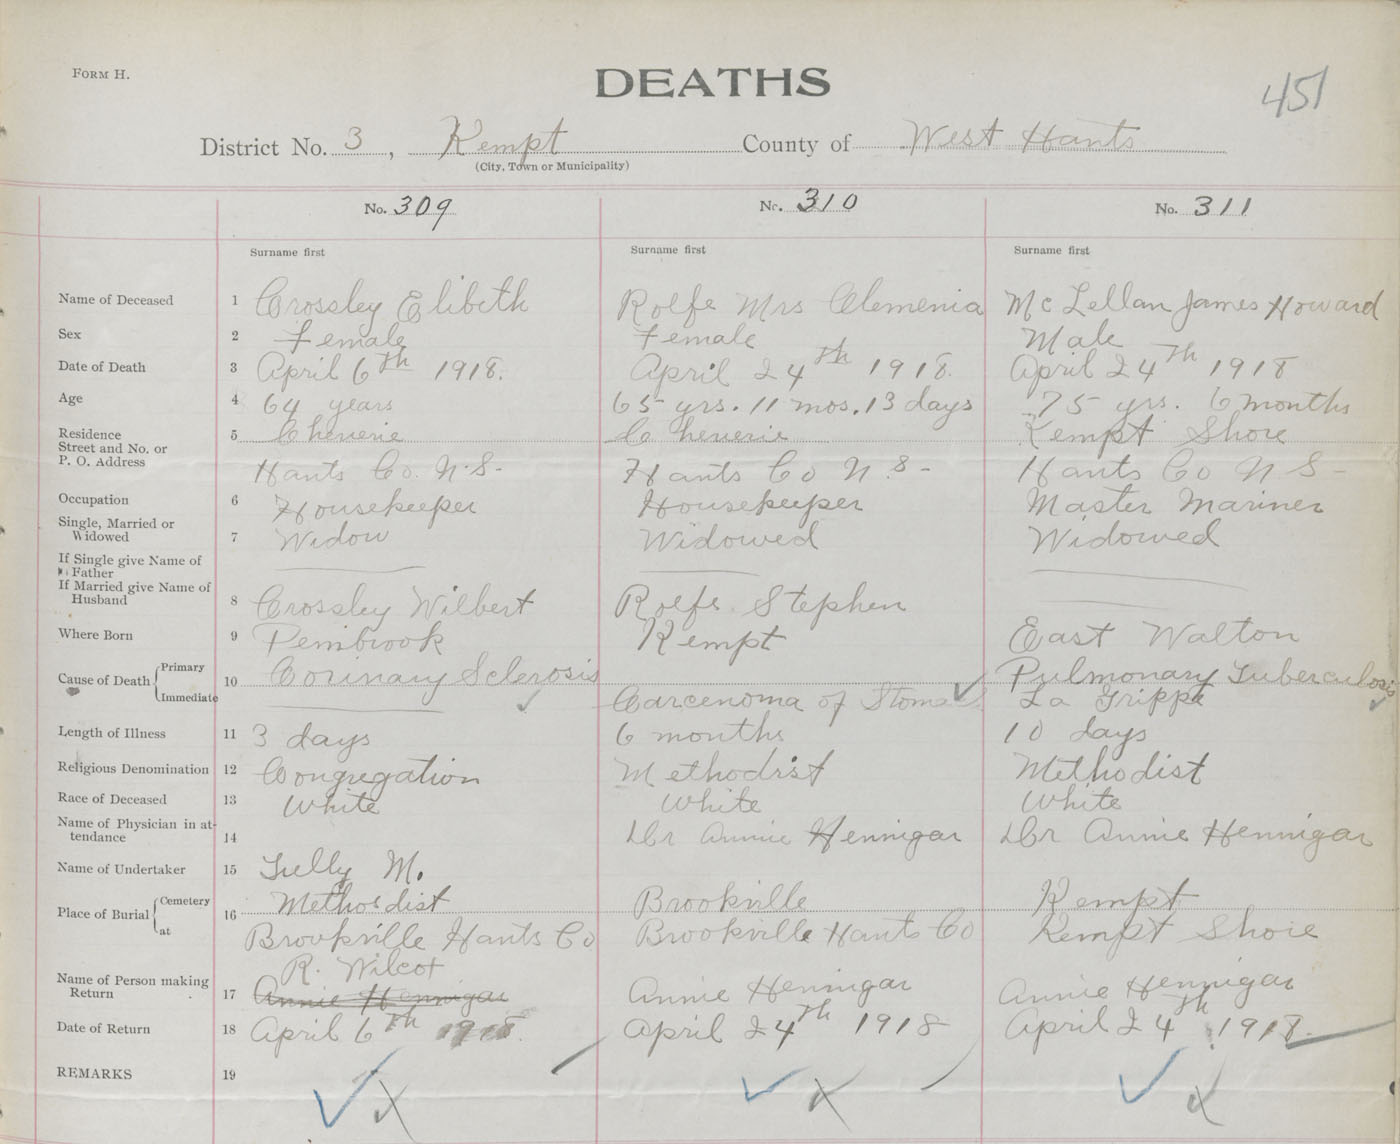 FORM H.
DEATHS
451
District No. 3, Kempt County of West Hants
(City, Town or Municipality)
No. 309 No. 310 No. 311
Surname first Surname first Surname first
Name of Deceased 1 Crossley Elibeth Rolfe Mrs Clemenia McLellan James Howard
Sex 2 Female Female Male
Date of Death 3 April 6th 1918. April 24th 1918. April 24th 1918
Age 4 64 years 65 yrs. 11 mos. 13 days 75 yrs. 6 months
Residence 5 Cheverie Cheverie Kempt Shore
Street and No. or
P. O. Address Hants Co. N.S- Hants Co N.S- Hants Co N S-
Occupation 6 Housekeeper Housekeeper Master Mariner
Single, Married or
Widowed 7 Widow Widowed Widowed
If Single give Name of
Father
If Married give Name of
Husband 8 Crossley Wilbert Rolfe Stephen
Where Born 9 Pembrook Kempt East Walton
Cause of Death Primary 10 Corinary Sclerosis Pulmonary Tuberculosis
Immediate Carcenoma of La Grippe
Length of Illness 11 3 days 6 months 10 days
Religious Denomination 12 Congregation Methodist Methodist
Race of Deceased 13 White White White
Name of Physician in at-
tendance 14 Dr Annie Hennigar Dr Annie Hennigar
Name of Undertaker 15 Tully M.
Place of Burial Cemetery 16 Methodist Brookville Kempt
at Brookville Hants Co Brookville Hants Co Kempt Shore
R. Wilcox
Name of Person making
Return 17 Annie Hennigar Annie Hennigar Annie Hennigar
Date of Return 18 April 6th 1918. April 24th 1918 April 24th 1918.
REMARKS 19